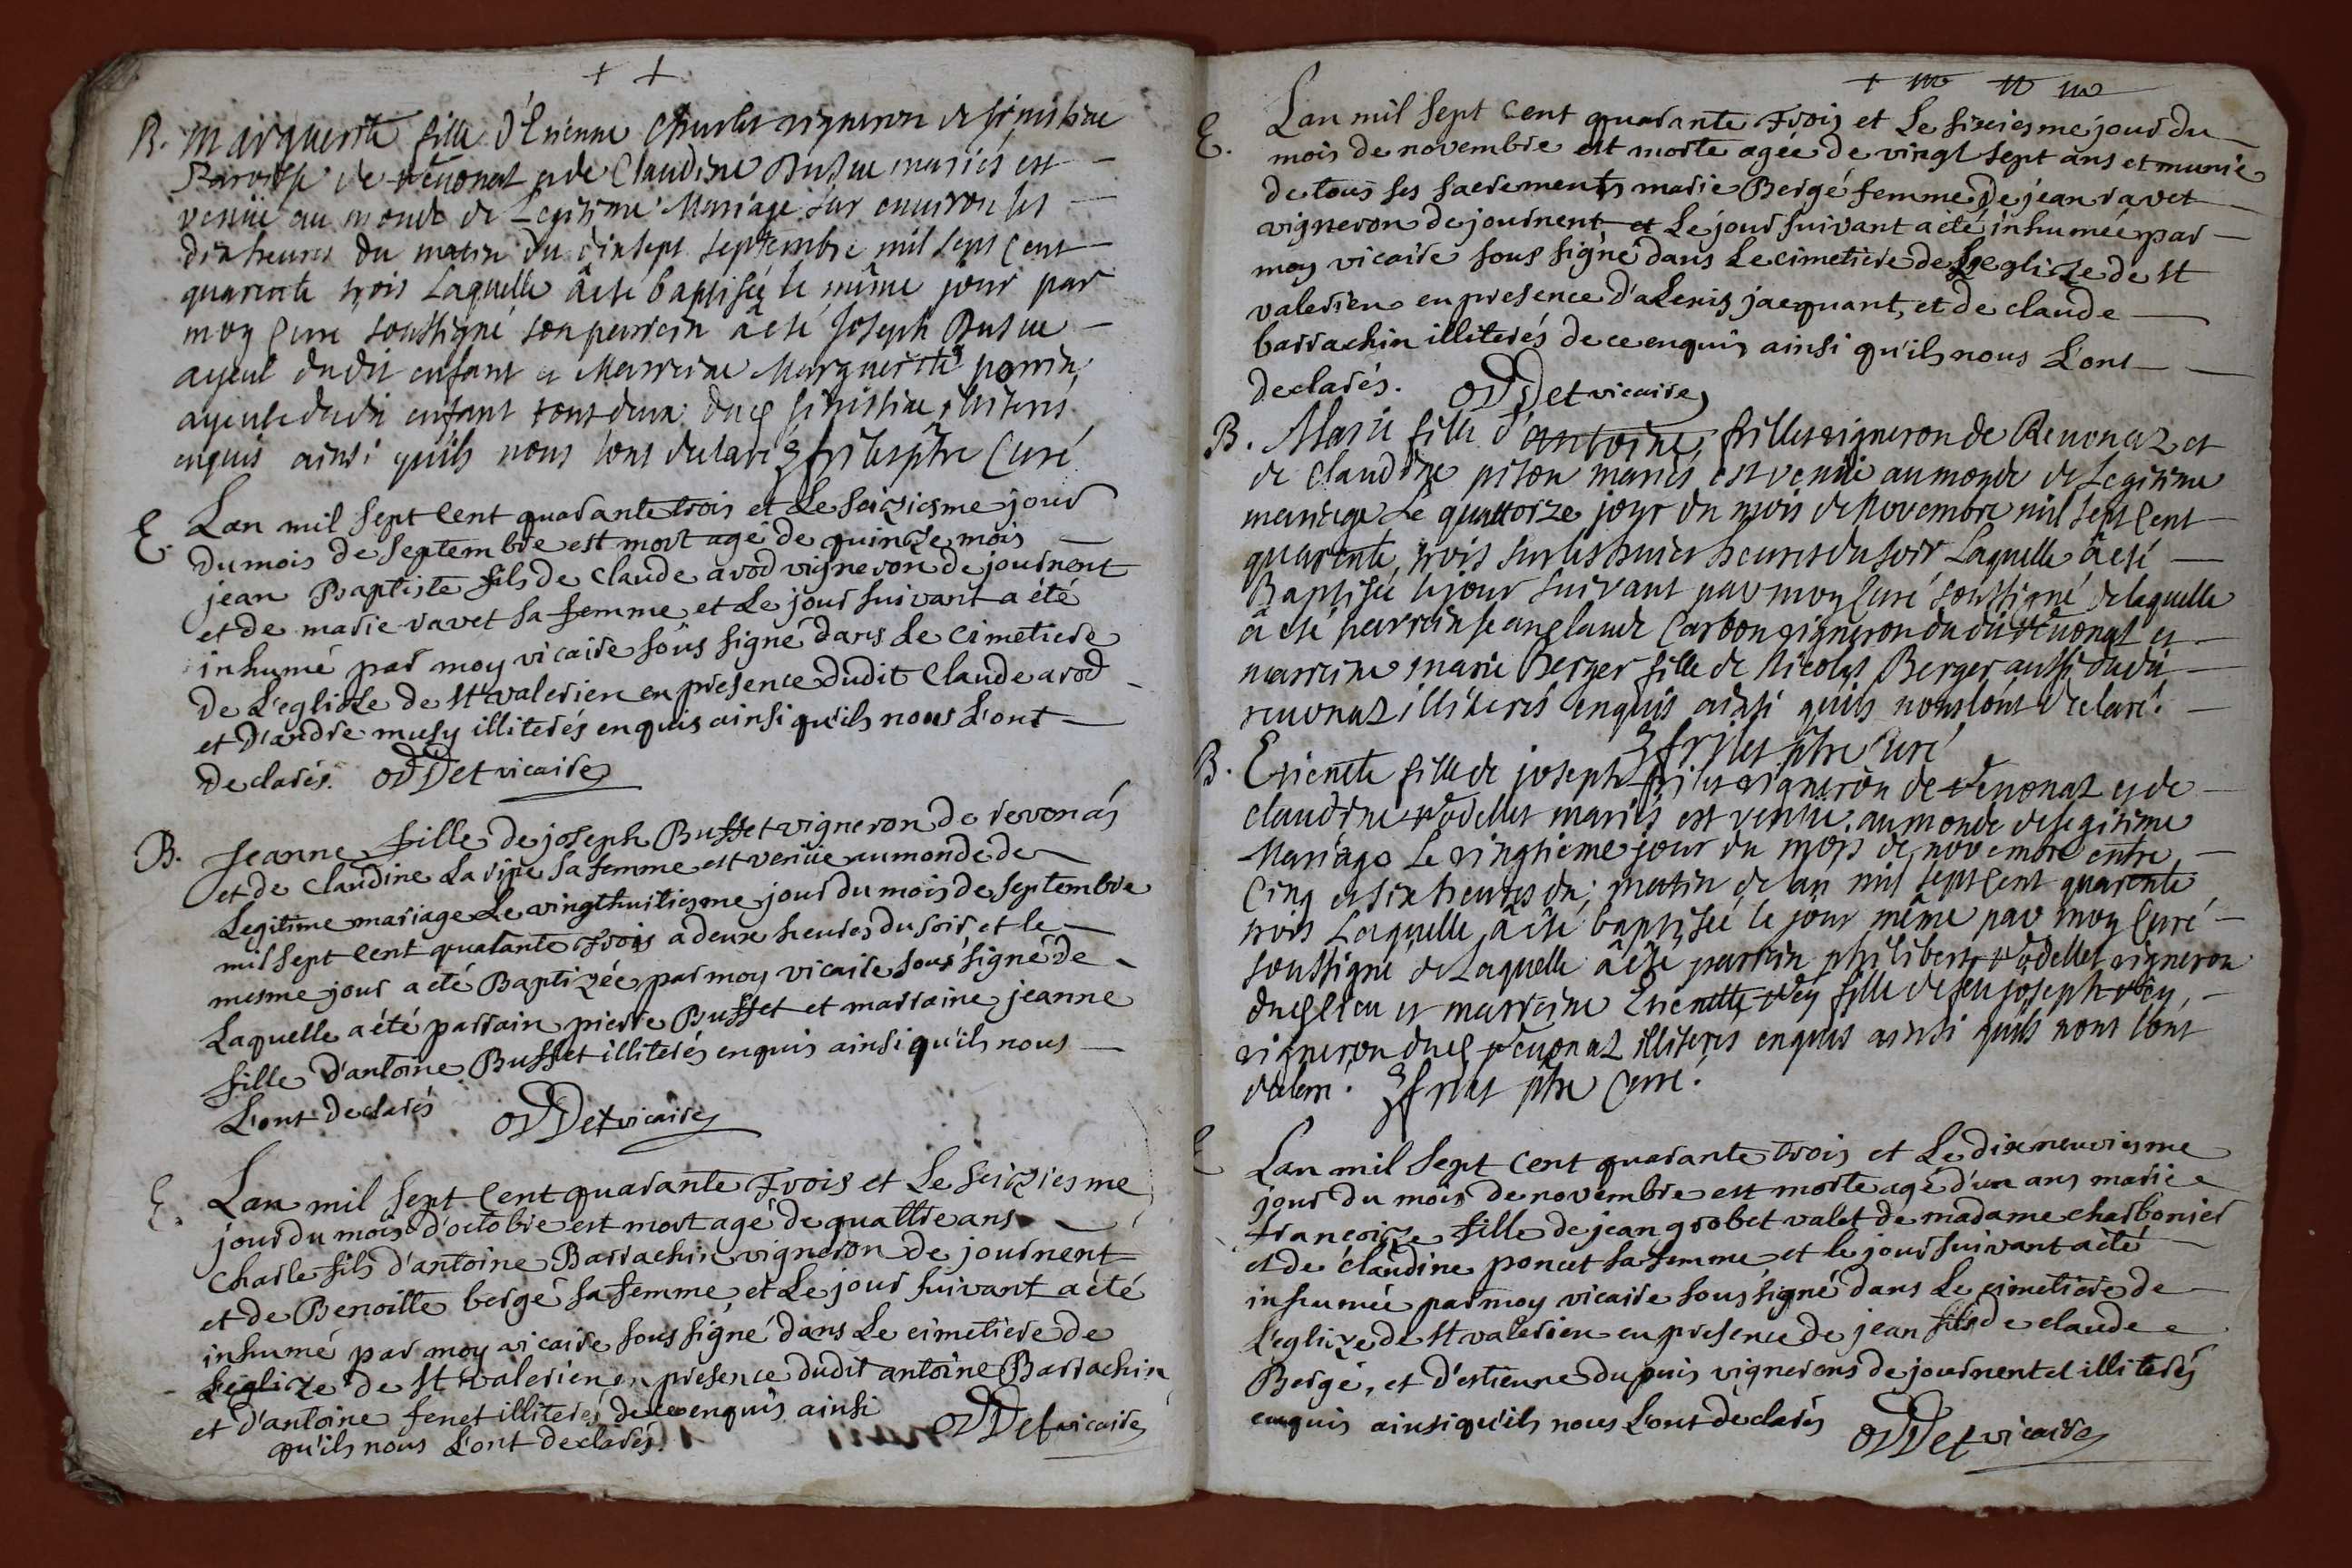 B. Marguerite fille d'Étienne Charlet vigneron de
Paroisse de revonat et de Claudine mariés est
venüe au monde de Legitime Mariage sur environ les
dix heures du matin du dixsept septembre mil sept cent
quarente trois Laquelle â esté baptisée le même jour par
moy Curé soussigné son parrein â esté Joseph
ayeul dudit enfant et Marreine Marguerite perrin
ayeule dudit enfant tous deux illiterés
enquis ainsi quils nous lont declaré frilet ptre Curé
E. Lan mil sept cent quarante trois et Le seiziesme jour
du mois de septembre est mort agé de quinze mois
jean Baptiste fils de Claude arod vigneron de journent
et de marie ravet sa femme et Le jour suivant a été
inhumé par moy vicaire sous signé dans Le cimetiere
de L'eglize de St valerien en presence dudit Claude arod
et d'andre musy illiterés enquis ainsi qu'ils nous L'ont
declarés. oDDet vicaire
B. Jeanne fille de joseph Buffet vigneron de revonás
et de Claudine La ripe sa femme est venüe au monde de
Legitime mariage Le vingthuitiesme jour du mois de septembre
mil sept cent quarante trois a deux heures du soir et le
mesme jour a été Baptizée par moy vicaire sous signé de
Laquelle a été parrain pierre Buffet et marraine jeanne
fille d'antoine Buffet illiterés enquis ainsi qu'ils nous
L'ont declarés oDDet vicaire
E. Lan mil sept cent quarante trois et Le seiziesme
jour du mois d'octobre est mort agé de quattre ans
Charle fils d'antoine Barrachin vigneron de journent
et de Benoitte bergé sa femme et Le jour suivant a été
inhumé par moy vicaire sous signé dans Le cimetiere de
L'eglize de St valerien en presence dudit antoine Barrachin
et d'antoine fenet illiterés de ce enquis ainsi
qu'ils nous L'ont declarés. oDDet vicaire
E. Lan mil sept cent quarante trois et Le sixiesme jour du
mois de novembre est morte agée de vingt sept ans et munie
de tous ses sacrements marie Bergé femme de jean ravet
vigneron de journent et Le jour suivant a été inhumée par
moy vicaire sous signé dans Le cimetiere de L'eglize de St
valerien en presence d'alexis jacquant, et de claude
barrachin illiterés de ce enquis ainsi qu'ils nous L'ont
declarés. oDDet vicaire
B. Marie fille d'antoine frillet vigneron de Revonaz et
de Claudine piton mariés est venüe au monde de Legitime
mariage Le quattorze jour du mois de Novembre mil sept cent
quarente trois sur les huict heures du soir Laquelle â esté
Baptisée le jour suivant par moy Curé soussigné de laquelle
â esté parrein jean claude Carbon vigneron du dit revonat et
marreine marie Berger fille de Nicolas Berger aussi dudit
revonaz illiterés enquis ainsi quils nous lont declaré.
frilet ptre Curé
B. Etienette fille de joseph frilet vigneron de revonaz et de
claudine rodellet mariés est venüe au monde de legitime
Mariage Le vingtieme jour du mois de novembre entre
Cinq et six heures du matin de lan mil sept cent quarente
trois Laquelle â esté baptisée le jour même par moy Curé
soussigné de Laquelle â esté parrein philibert rodellet vigneron
dud lieu et marreine Etienette rey fille de feu joseph rey
vigneron dud revonaz illiterés enquis ainsi quils nous lont
declaré. frilet ptre Curé.
E Lan mil sept cent quarante trois et Le dixneuviesme
jour du mois de novembre est morte agé d'un ans marie
françoize fille de jean grobet valet de madame charbonier
et de claudine poncet sa femme et le jour suivant a été
inhumée par moy vicaire sous signé dans Le cimetiere de
L'eglize de St valerien en presence de jean fils de claude
Bergé, et d'estienne dupuis vignerons de journent et illiterés
enquis ainsi qu'ils nous L'ont declarés oDDet vicaire